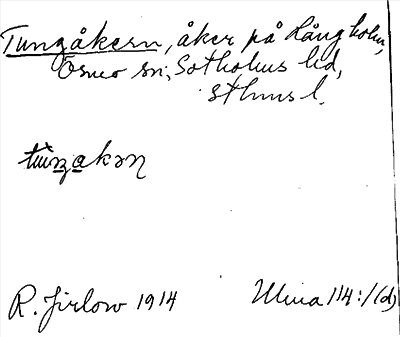 Tungåkern, åker på Långholm,
Ösmo sn; Sotholms hd,
Sthms l.
R. Jirlow 1914
Ulma 114:1(d)